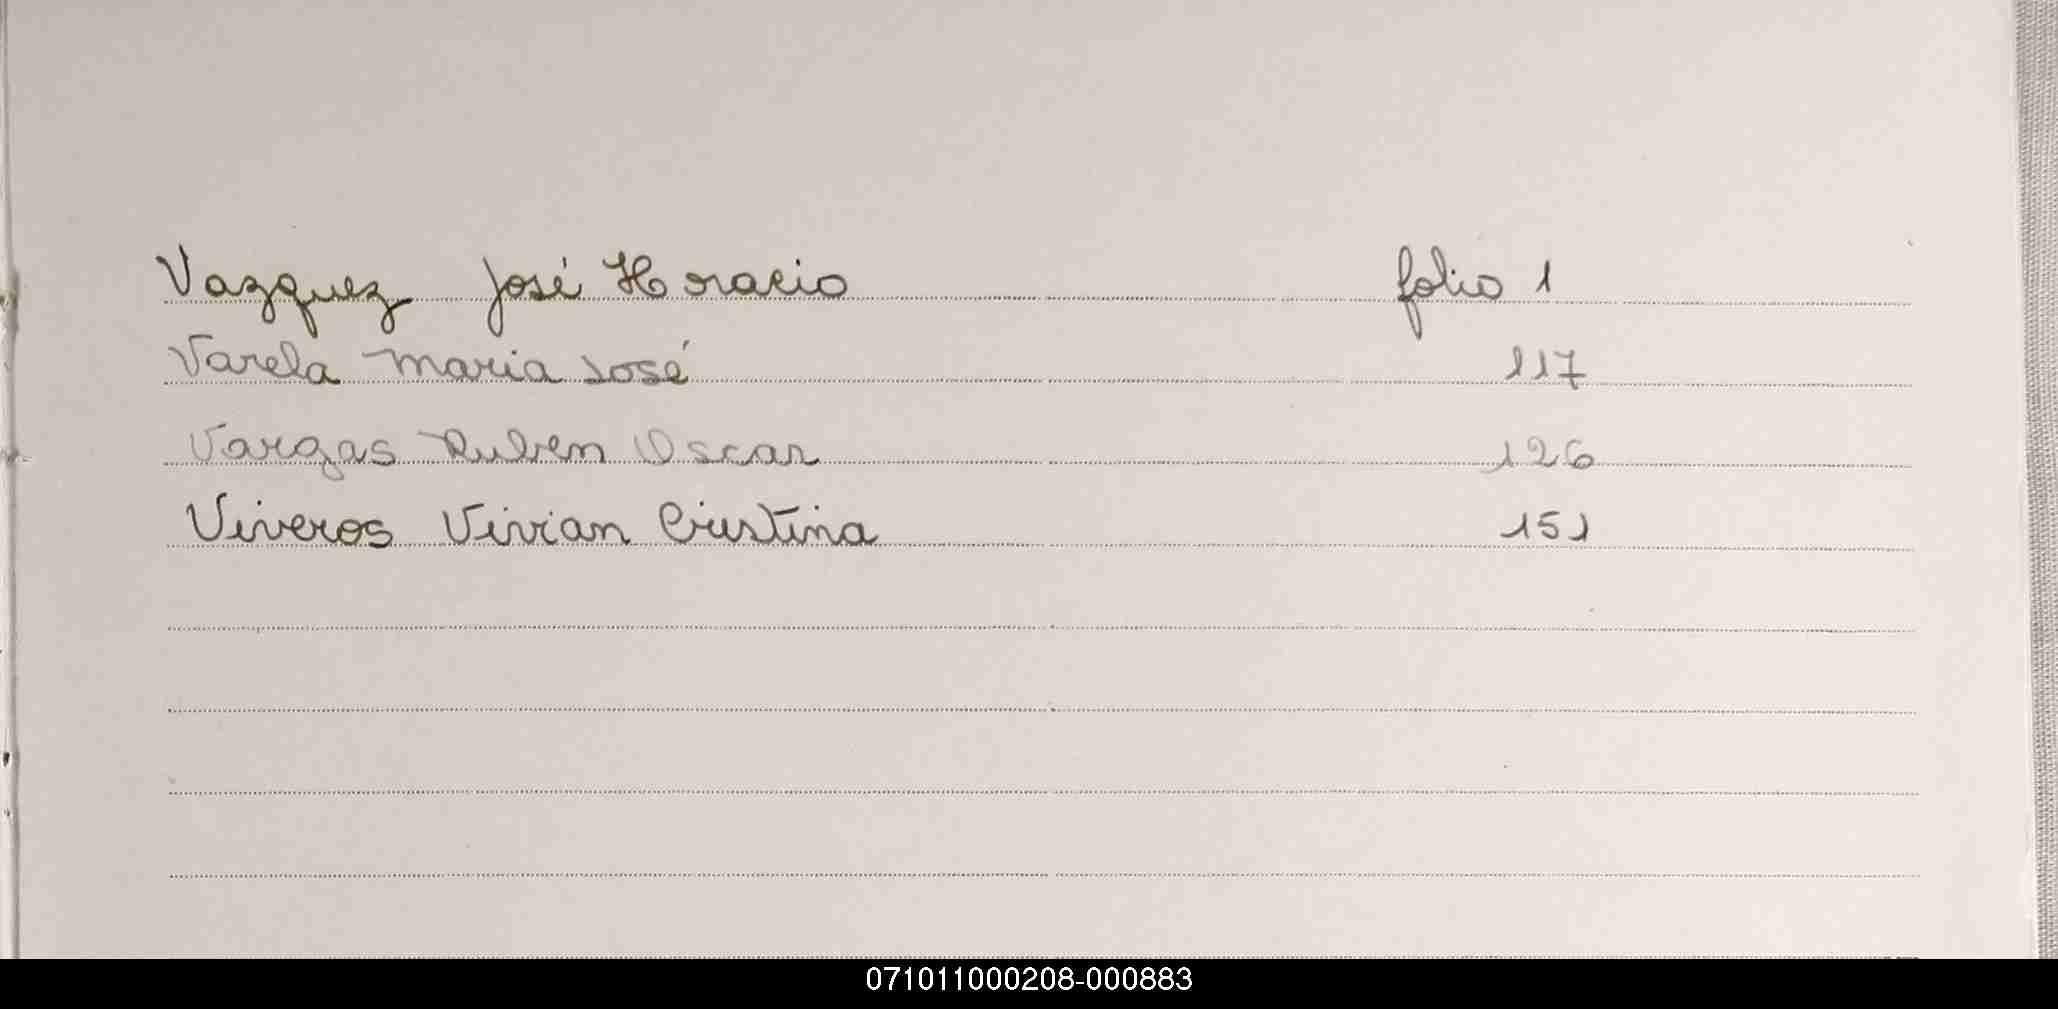 Vazquez José Horacio folio 1
Varela Maria José 117
Vargas Ruben Oscar 126
Viveros Vivian Cristina 151
071011000208-000883